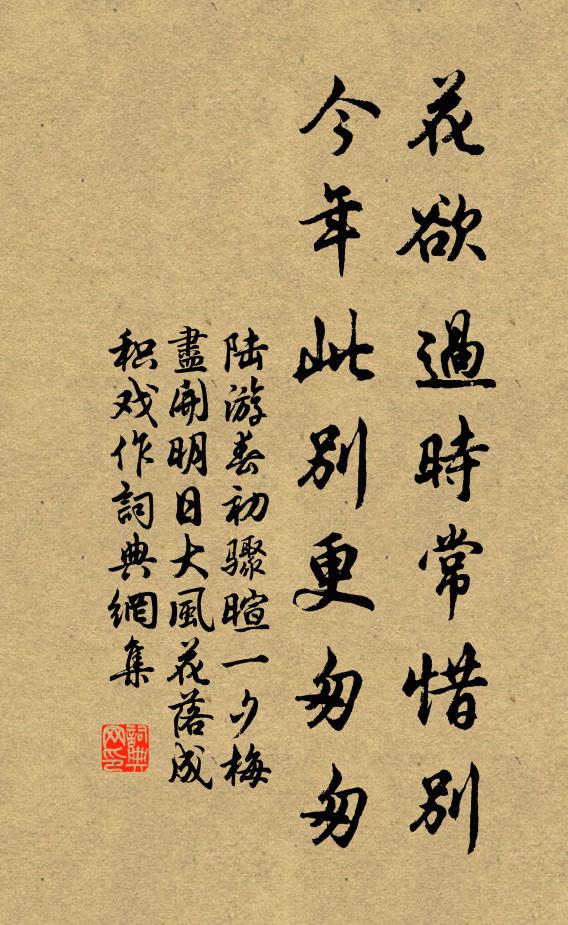 花欲過時常惜別
今年此別更匆匆
陆游春初骤暄一夕梅
盡開明日大風花落成
积戏作詞典網集
詞典
网印